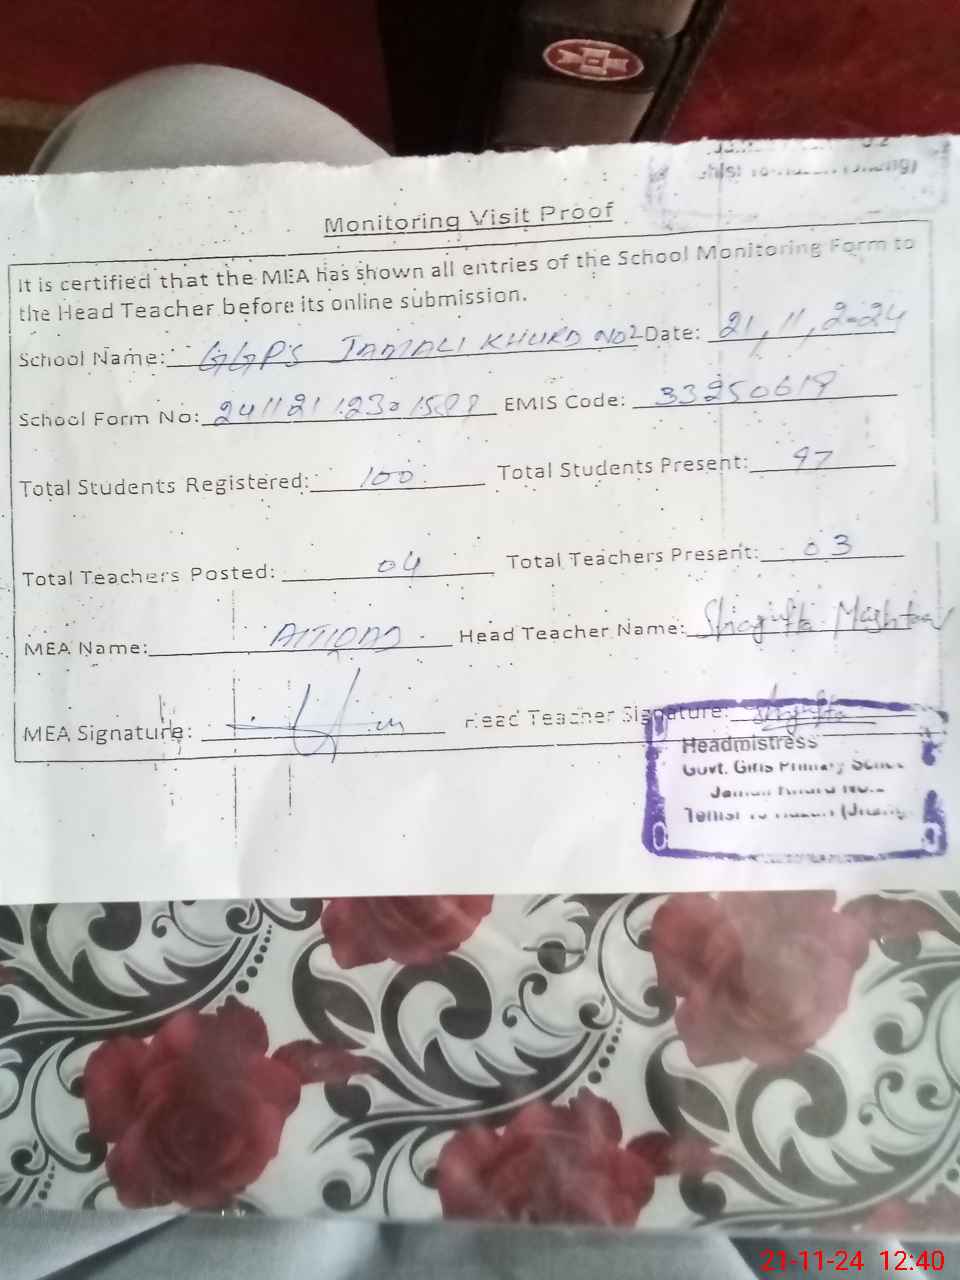 Monitoring Visit Proof
It is certified that the MEA has shown all entries of the School Monitoring Form to
the Head Teacher before its online submission.
School Name: GGPS JAMALI KHURD NO2 Date: 21, 11, 2024
School Form No: EMIS Code: 33250619
Total Students Registered: 100 Total Students Present: 97
Total Teachers Posted: 04 Total Teachers Present: 03
MEA Name: Head Teacher Name: Shagufta Mushtaq
MEA Signature: Head Teacher Signature: Shagufta
Headmistress
Govt. Girls Primary
21-11-24 12:40